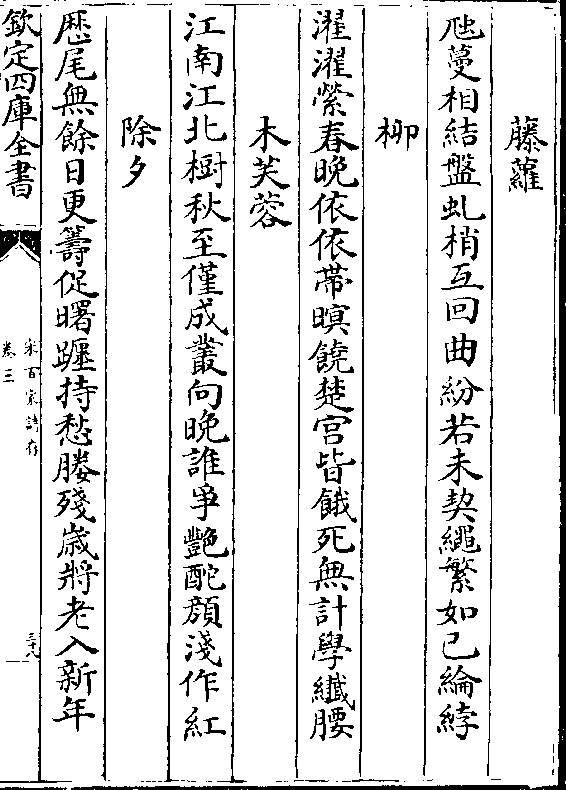 藤蘿
虺蔓相結盤虬梢互回曲紛若未契繩繁如已綸綍
柳
濯濯縈春晚依依帶暝饒楚宫皆餓死無計學纎腰
木芙蓉
江南江北樹秋至僅成叢向晚誰爭艷酡顔淺作紅
除夕
厯尾無餘日更籌促曙躔持愁媵殘歲將老入新年
欽定四庫全書
宋百家詩存
卷三
三十八